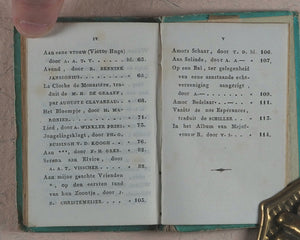 IV
Aan eene vrouw (Victor Hugo)
door A. A. T. M. 63.
Avond, door R. BENNINK
JANSSONIUS 65.
La Cloche du Monastère, tra-
duit de M. H. DE GRAAFF
par AUGUSTE CLAVAREAU. 68.
Het Bloempje, door H. MA-
RONIER 71.
Lied, door A. WINKLER PRINS. 74.
Jongelingsklagt, door PH. GO-
BUSINGH V. D. KOOGH 76.
Aan ***, door P. H. GREB. 80.
Verena aan Elvire, door
A. T. VISSCHER 82.
Aan mijne geachte Vrienden
*, op den eersten tand
van hun Zoontje, door
J. CHRISTEMEIJER 105.
V
Amors Schaar, door V. D. M. 106.
Aan Selinde, door A. A— 107.
Op een Bal, ter gelegenheid
van eene aanstaande echt-
vereeniging
109.
Amor Bedelaar 111.
Vanité de nos Espérances,
traduit de SCHILLER 113.
In het Album van Mejuf-
vrouw B. door T. V. 114.